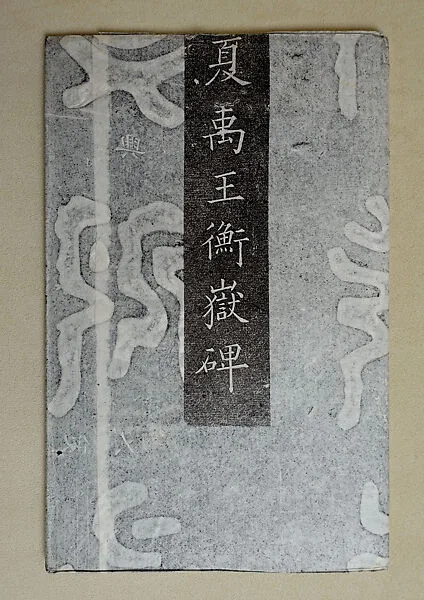 夏禹王衡嶽碑
興